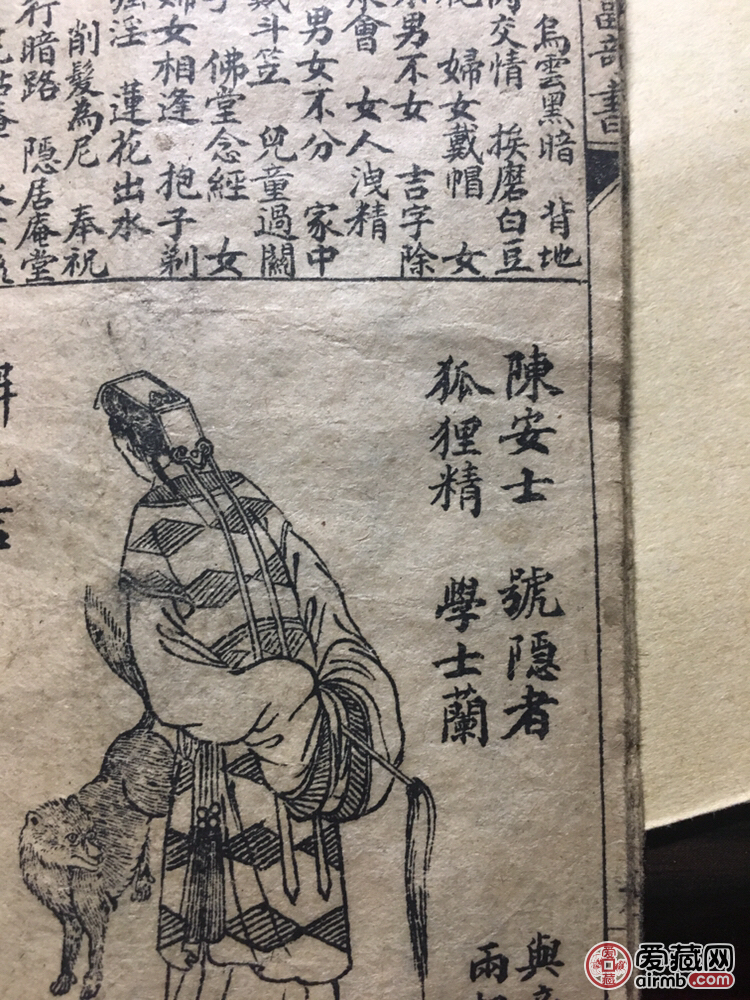 書
烏雲黑暗 背地
交情 挨磨白豆
婦女戴帽 女
不男不女 吉字除
會 女人洩精
男女不分 家中
戴斗笠 兒童過關
佛堂念經 女
婦女相逢 抱子剃
淫 蓮花出水
削髮為尼 奉祝
行暗路 隱居庵堂
庵
陳安士 號隱者
狐狸精 學士蘭
與
兩
爱藏网
airmb.com